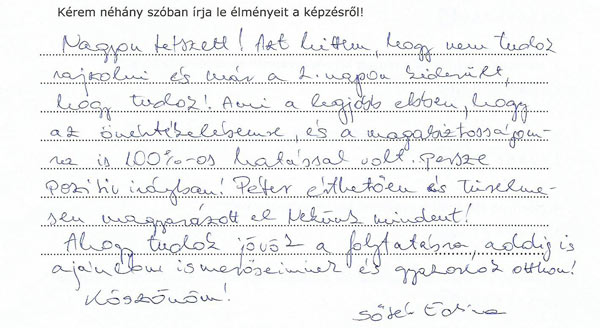 Kérem néhány szóban írja le élményeit a képzésről!
Nagyon tetszett! Azt hittem, hogy nem tudok
rajzolni és már a 2. napon kiderült,
hogy tudok! Ami a legjobb ebben, hogy
az önértékelésemre, és a magabiztosságom-
ra is 100%-os hatással volt. Persze
pozitív irányban! Péter érthetően és türelme-
sen magyarázott el Nekünk mindent!
Ahogy tudok jövök a folytatásra, addig is
ajánlom ismerőseimnek és gyakorlok otthon!
Köszönöm!
Edina